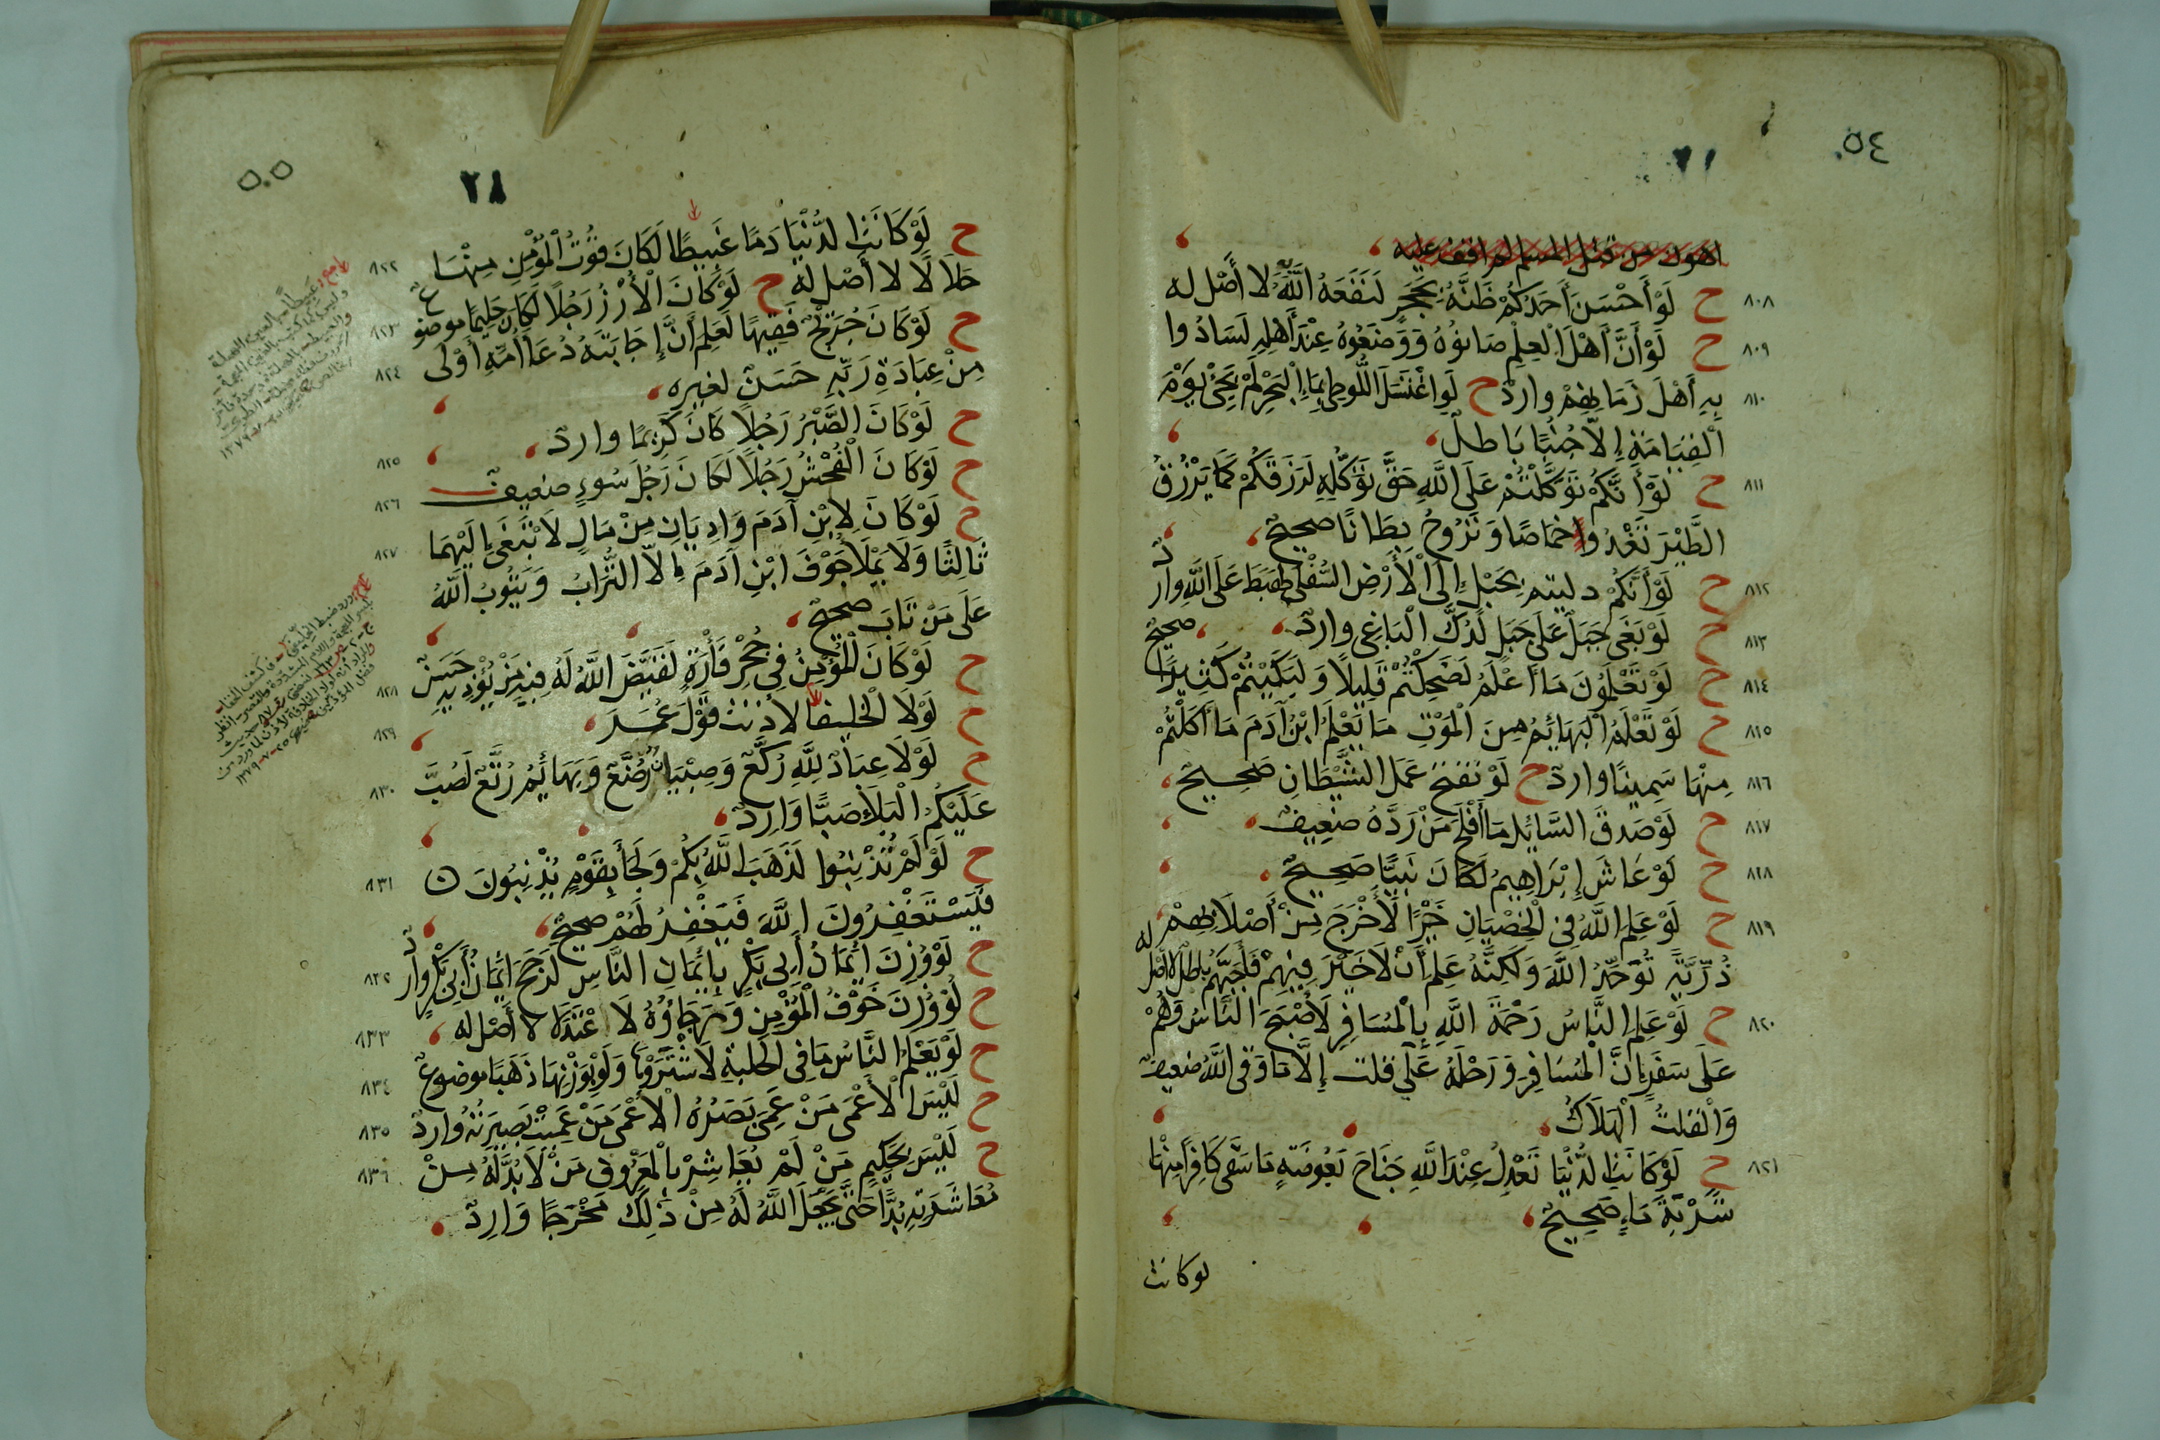 ٥٤
٢١
اهون من قتل المسلم لم اقف عليه
٨٠٨ ح لَوْ أَحْسَنَ أَحَدُكُمْ ظَنَّهُ بِحَجَرٍ لَنَفَعَهُ اللَّهُ بِهِ لا أَصْل له
٨٠٩ ح لَوْ أَنَّ أَهْلَ الْعِلْمِ صَانُوُهُ وَوَضَعُوهُ عِنْدَ أَهْلِهِ لَسَادُوا
٨١٠ بِهِ أَهْلَ زَمَانِهِمْ وارد ح لَوِ اغْتَسَلَ اللُّوطِى بِمَاءِ الْبَحْرِ لَمْ يَجِئْ يَوْمَ
الْقِيَامَةِ إِلَّا جُنُبًا بَاطل
٨١١ ح لَوْ أَنَّكُمْ تَوَكَّلْتُمْ عَلَى اللَّهِ حَقَّ تَوَكُّلِهِ لَرَزَقَكُمْ كَمَا يَرْزُقُ
الطَّيْرَ تَغْدُوا خِمَاصًا وَتَرُوحُ بِطَانًا صحيح
٨١٢ ح لَوْ أَنَّكُمْ دليتم بِحَبْلٍ إِلَى الْأَرْضِ السُّفْلَى لَهَبَطَ عَلَى اللَّهِ وارد
٨١٣ ح لَوْ بَغَى جَبَلٌ عَلَى جَبَلٍ لَدُكَّ الْبَاغِى وارد
٨١٤ ح لَوْ تَعْلَمُونَ مَا أَعْلَمُ لَضَحِكْتُمْ قَلِيلًا وَلَبَكَيْتُمْ كَثِيرًا صحيح
٨١٥ ح لَوْ تَعْلَمُ الْبَهَائِمُ مِنَ الْمَوْتِ مَا يَعْلَمُ ابْنُ آدَمَ مَا أَكَلْتُمْ
٨١٦ مِنْهَا سَمِينًا وارد ح لَوْ تَفْتَحُ عَمَلَ الشَّيْطَانِ صَحِيح
٨١٧ ح لَوْ صَدَقَ السَّائِلُ مَا أَفْلَحَ مَنْ رَدَّهُ ضَعِيف
٨٢٨ ح لَوْ عَاشَ إِبْرَاهِيمُ لَكَانَ نَبِيًّا صَحِيحٌ
٨١٩ ح لَوْ عَلِمَ اللَّهُ فِى الْخِصْيَانِ خَيْرًا لَأَخْرَجَ مِنْ أَصْلَابِهِمْ
ذُرِّيَّةً تُوَحِّدُ اللَّهَ وَلَكِنَّهُ عَلِمَ أَنْ لَا خَيْرَ فِيهِمْ فَأَجَبَّهُمْ باطل لا أصل له
٨٢٠ ح لَوْ عَلِمَ النَّاسُ رَحْمَةَ اللَّهِ بِالْمُسَافِرِ لَأَصْبَحَ النَّاسُ وَهُمْ
عَلَى سَفَرٍ إِنَّ الْمُسَافِرَ وَرَحْلَهُ عَلَى قلت إِلَّا مَا وَقَى اللَّهُ ضعيف
وَالْقَلتُ الْهَلَاكُ
٨٢١ ح لَوْ كَانَتِ الدُّنْيَا تَعْدِلُ عِنْدَ اللَّهِ جَنَاحَ بَعُوضَةٍ مَا سَقَى كَافِرًا مِنْهَا
شَرْبَةَ مَاءٍ صَحِيحٌ
لوكانت
٥٠٥
٢٨
٨٢٢ ح لَوْ كَانَتِ الدُّنْيَا دَمًا عَبِيطًا لَكَانَ قُوتُ الْمُؤْمِنِ مِنْهَا
٨٢٣ حَلَالًا لا أَصْل لَهُ ح لَوْ كَانَ الْأُرْزُ رَجُلًا لَكَانَ حَلِيمًا موضوع
٨٢٤ ح لَوْ كَانَ جُرَيْجٌ فَقِيهًا لَعَلِمَ أَنَّ إِجَابَتَهُ دُعَاءَ أُمِّهِ أَوْلَى
مِنْ عِبَادَةِ رَبِّهِ حَسَنٌ لغيره
٨٢٥ ح لَوْ كَانَ الصَّبْرُ رَجُلًا كَانَ كَرِيمًا وارد
٨٢٦ ح لَوْ كَانَ الْفُحْشُ رَجُلًا لَكَانَ رَجُلَ سُوءٍ ضعيف
٨٢٧ ح لَوْ كَانَ لِابْنِ آدَمَ وَادِيَانِ مِنْ مَالٍ لَابْتَغَى إِلَيْهِمَا
ثَالِثًا وَلَا يَمْلَأُ جَوْفَ ابْنِ آدَمَ إِلَّا التُّرَابُ وَيَتُوبُ اللَّهُ
عَلَى مَنْ تَابَ صحيح
٨٢٨ ح لَوْ كَانَ الْمُؤْمِنُ فِي جُحْرِ فَأْرَةٍ لَقَيَّضَ اللَّهُ لَهُ فِيهِ مَنْ يُؤْذِيهِ حَسَنٌ
٨٢٩ ح لَوْلَا الْخَلِيفَا لأذنت قَوْلَ عُمَرَ
٨٣٠ ح لَوْلَا عِبَادٌ لِلَّهِ رُكَّعٌ وَصِبْيَانٌ رُضَّعٌ وَبَهَائِمُ رُتَّعٌ لَصُبَّ
عَلَيْكُمُ الْبَلَاءُ صَبًّا وَارِد
٨٣١ ح لَوْ لَمْ تُذْنِبُوا لَذَهَبَ اللَّهُ بِكُمْ وَلَجَاءَ بِقَوْمٍ يُذْنِبُونَ
فَيَسْتَغْفِرُونَ اللَّهَ فَيَغْفِرُ لَهُمْ صحيح
٨٣٢ ح لَوْ وُزِنَ ائِمَانُ أَبِى بَكْرٍ بِائِمَانِ النَّاسِ لَرَجَحَ ائِمَانُ أَبِى بَكْرٍ وارد
٨٣٣ ح لَوْ وُزِنَ خَوْفُ الْمُؤْمِنِ وَرَجَاؤُهُ لَاعْتَدَلَا لا أَصْل له
٨٣٤ ح لَوْ يَعْلَمُ النَّاسُ مَا فِى الْحُلْبَةِ لَاشْتَرَوْهَا وَلَوْ بِوَزْنِهَا ذَهَبًا موضوع
٨٣٥ ح لَيْسَ الْأَعْمَى مَنْ عَمِىَ بَصَرُهُ الْأَعْمَى مَنْ عَمِيَتْ بَصِيرَتُهُ وارد
٨٣٦ ح لَيْسَ بِحَكِيمٍ مَنْ لَمْ يُعَاشِرْ بِالْمَعْرُوفِ مَنْ لَابُدَّ لَهُ مِنْ
مُعَاشَرَتِهِ بُدًّا حَتَّى يَجْعَلَ اللَّهُ لَهُ مِنْ ذَلِكَ مَخْرَجًا وَارِد